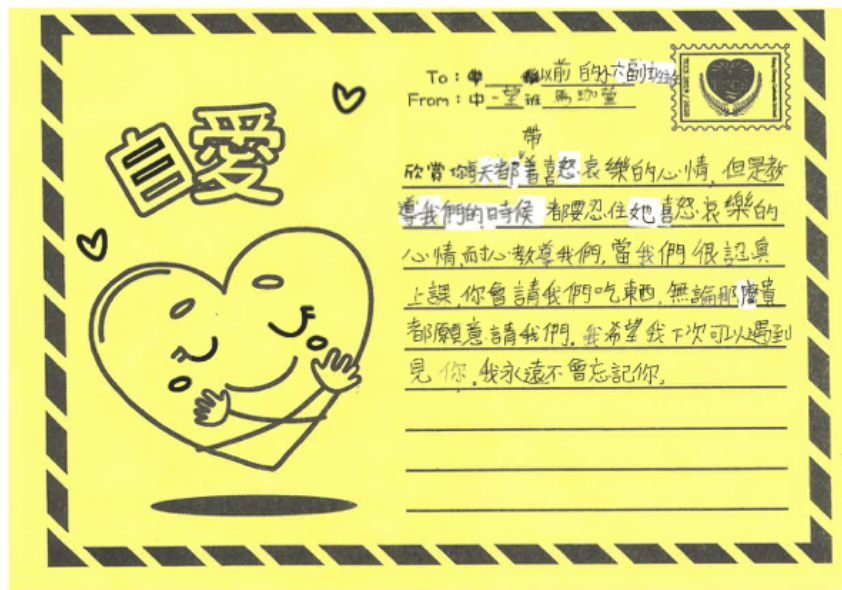 自愛
To：中 以前的小六副班主任
From：中一望班 馬珈萱
帶
欣賞你每天都着喜怒哀樂的心情，但是教
導我們的時侯 都要忍住她喜怒哀樂的
心情，耐心教導我們，當我們很認真
上課，你會請我們吃東西，無論那麼貴
都願意請我們。我希望我下次可以遇到
見你，我永遠不會忘記你。